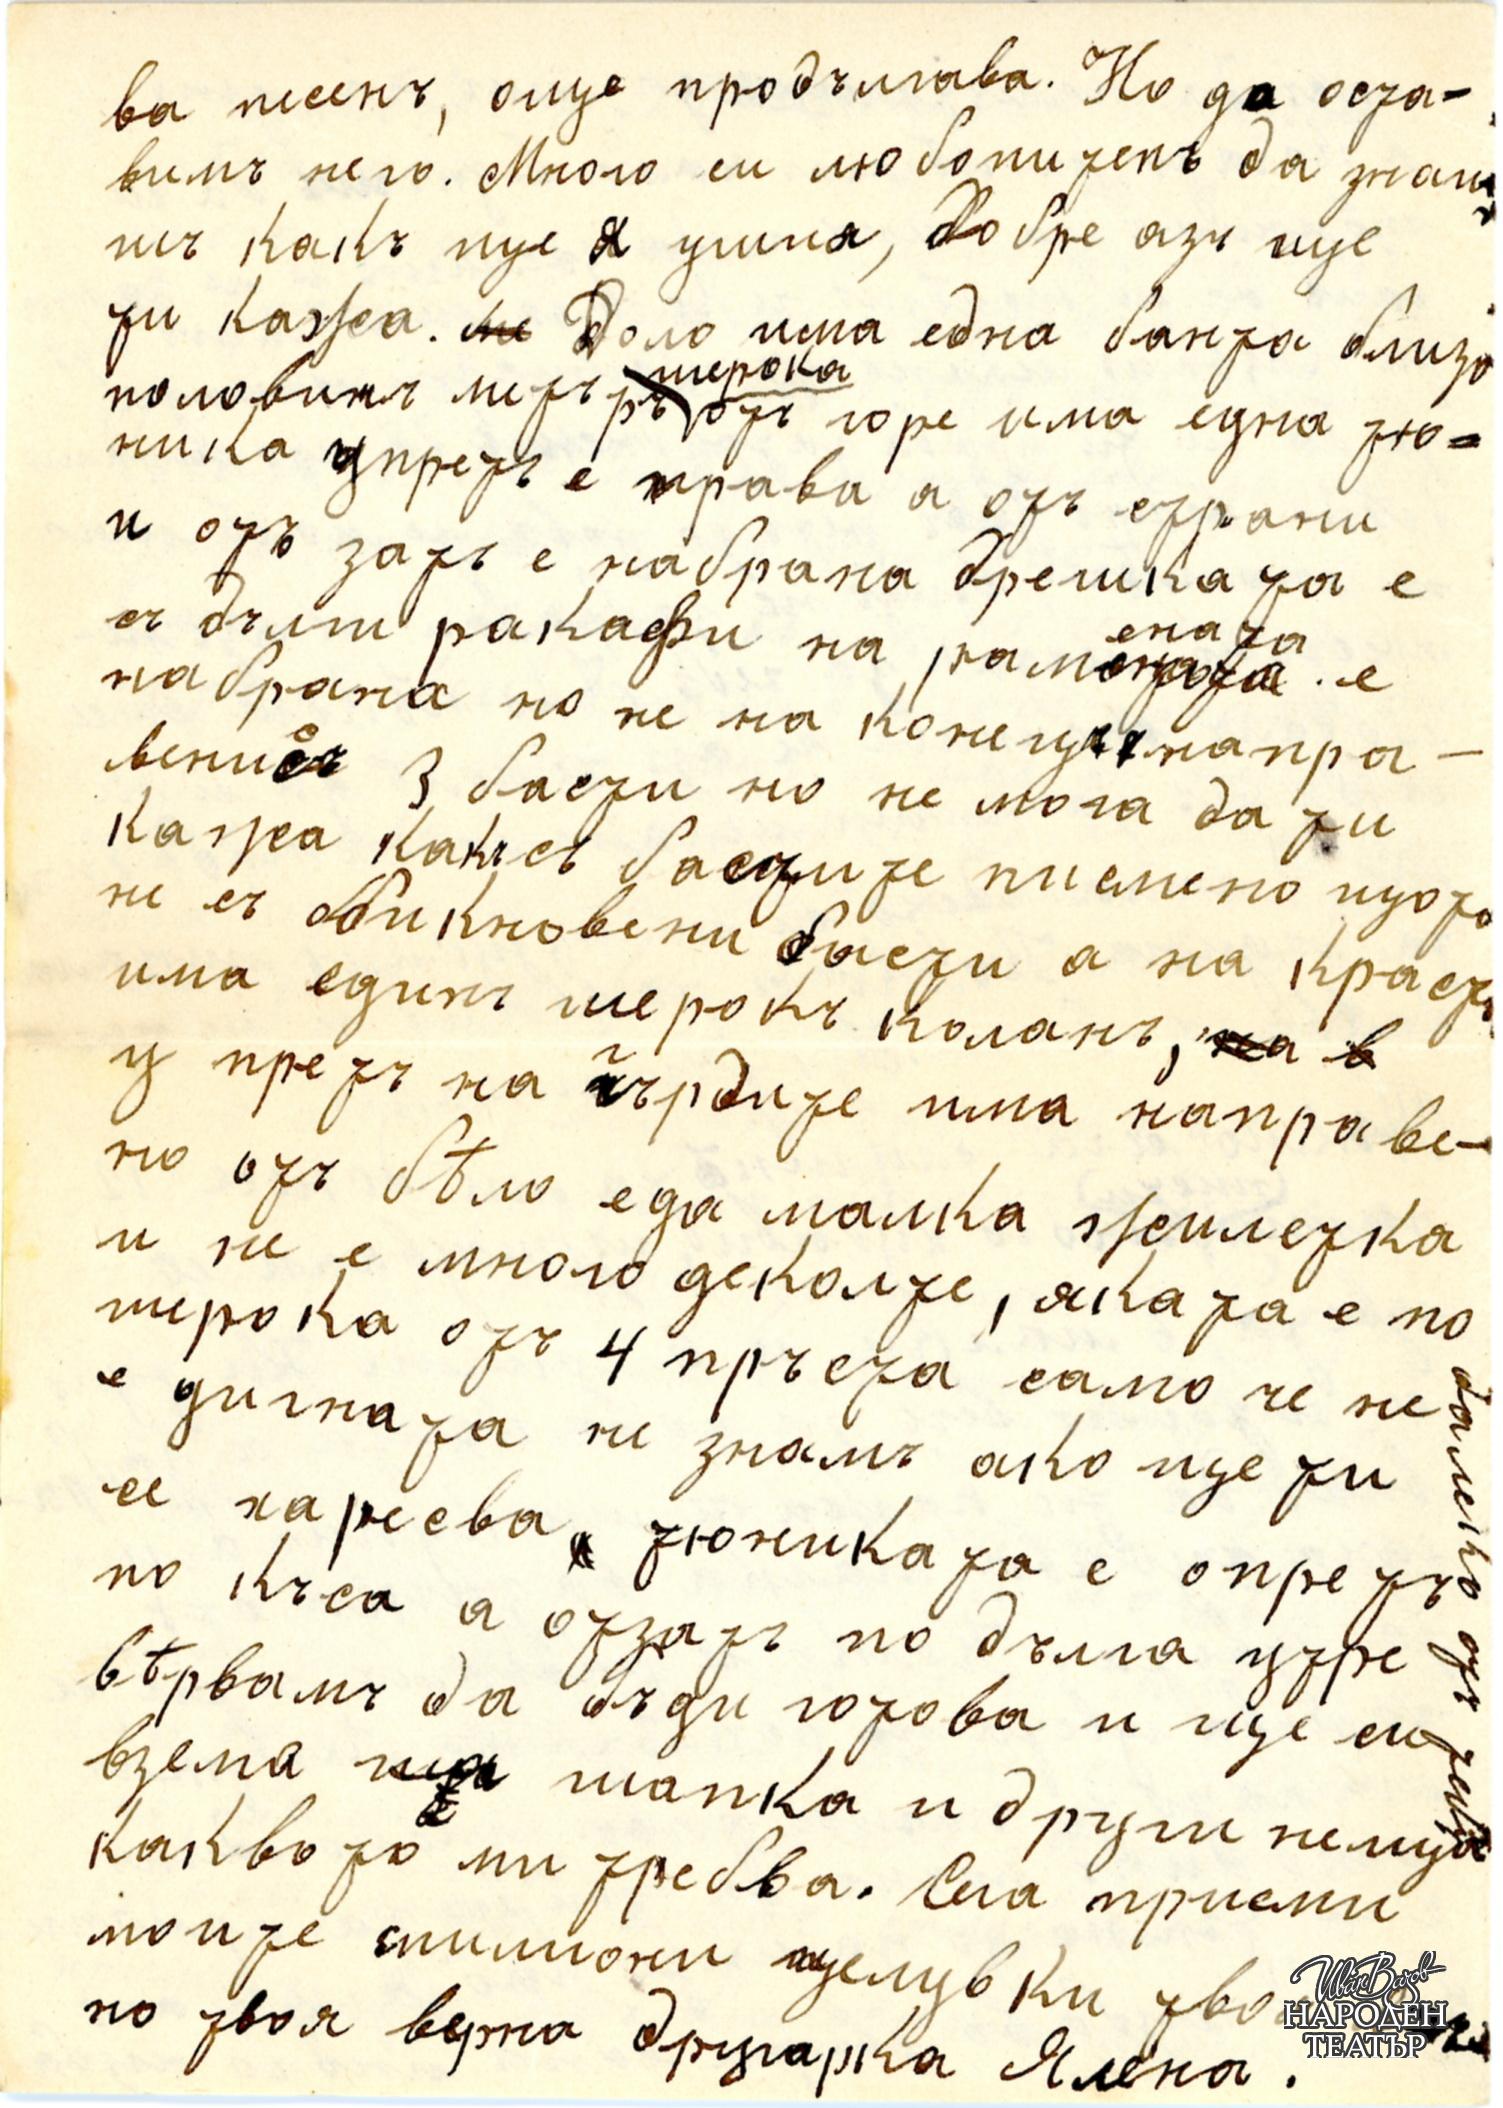 ва песенъ, още продължава. Но да оста-
вимъ него. Много си любопитенъ да знаиш
ш какъ ще я ушия, Добре азъ ще
ти кажа. Доло има една банта близо
половинъ метъръ широка
отъ горе има една тю-
ника упретъ е права а отъ страни
и отъ затъ е набрана дрешката е
съ дълги ракафи на рамената е
набрана но не на конецъ напра-
вени съ 3 басти но не мога да ти
кажа какъ съ бастите писмено щото
не съ обикновени басти а на кръстъ
има единъ шерокъ коланъ,
у претъ на гърдите има направе-
но отъ бѣло еда малка жилетка
и не е много деколте, яката е по
шерока отъ 4 пръста само че не
е дигната не знамъ ако ще ти
се харесва, тюниката е опретъ
по къса а отзатъ по дълга утре
вѣрвамъ да бъди готова и ще си
взема шапка и други неща
каквото ми требва. Сега приеми
моите милиони целувки
но твоя верна другарка Ялена.
далеко отъ тебе
Иван Вазов
НАРОДЕН
ТЕАТЪР